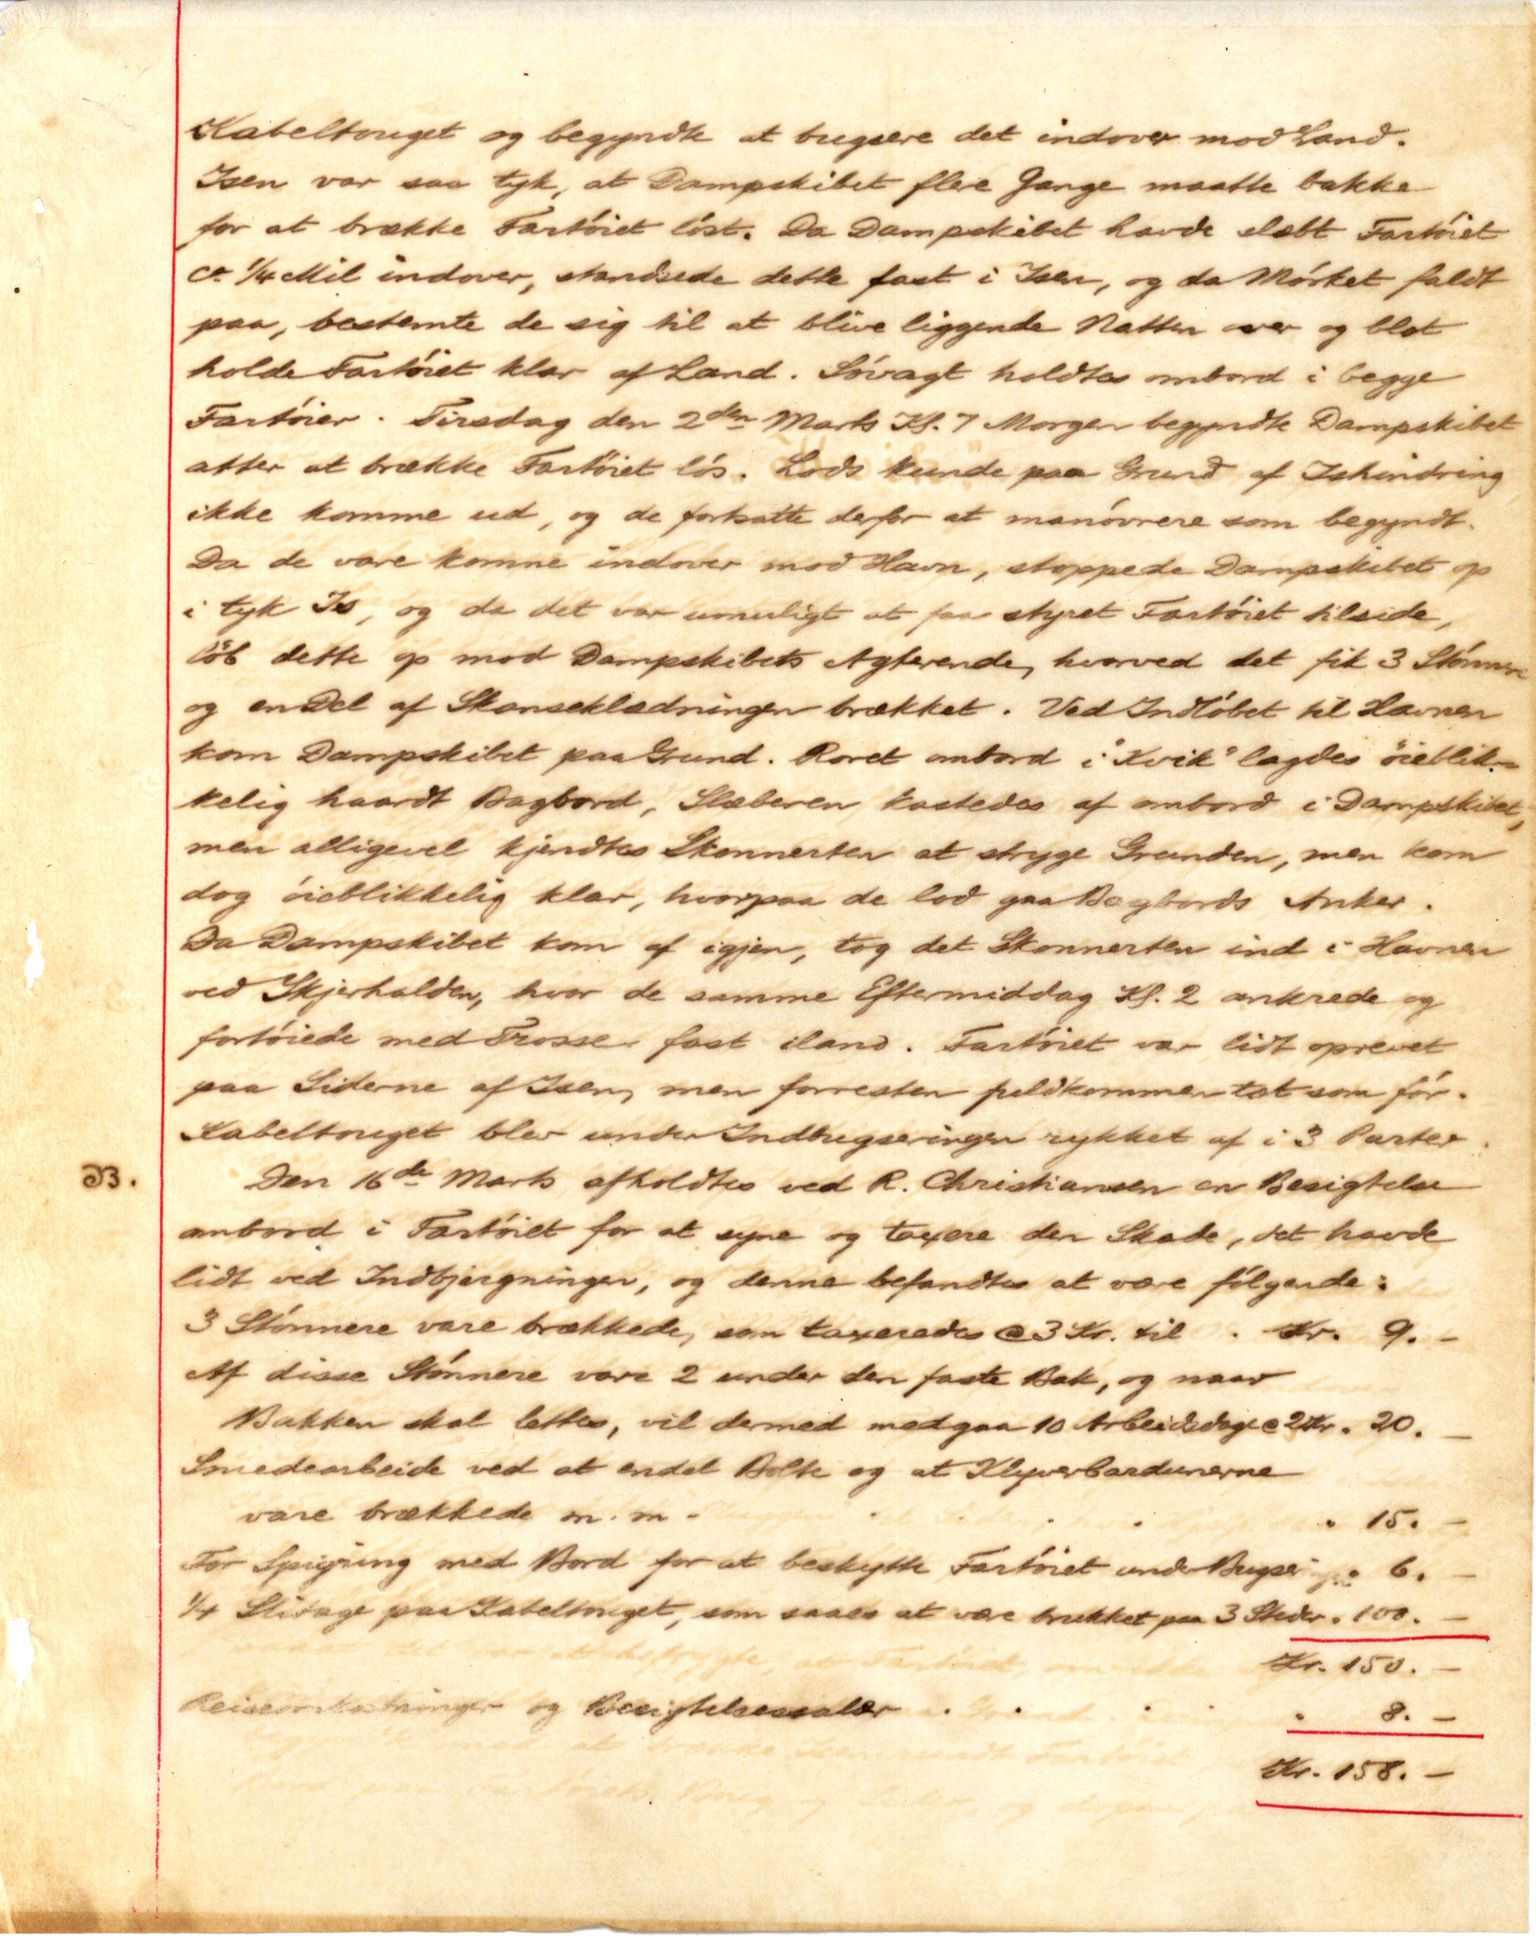 Kabeltouget og begyndte at bugsere det indover mod Land.
Isen var saa tyk, at Dampskibet flere Gange maatte bakke
for at brække Fartöiet löst. Da Dampskibet havde slæbt Fartöiet
ca 1/4 Mil indover, standsede dette fast i Isen, og da Mörket faldt
paa, bestemte de sig til at blive liggende Natten over og blot
holde Fartöiet klar af Land. Sövagt holdtes ombord i begge
Fartöier. Tirsdag den 2den Marts Kl. 7 Morgen begyndte Dampskibet
atter at brække Fartöiet lös. Lods kunde paa Grund af Ishindring
ikke komme ud, og de fortsatte derfor at manövrere som begyndt.
Da de vare komne indover mod Havn, stoppede Dampskibet op
i tyk Is, og da det var umuligt at faa styret Fartöiet tilside,
löb dette op mod Dampskibets Agterende, hvorved det fik 3 Stönnere
og en Del af Skanseklædningen brækket. Ved Indlöbet til Havnen
kom Dampskibet paa Grund. Roret ombord i "Kvik" lagdes öieblik-
kelig haardt Bagbord, Slæberen kastedes af ombord i Dampskibet,
men alligevel kjendtes Skonnerten at stryge Grunden, men kom
dog öieblikkelig klar, hvorpaa de lod gaa Bagbords Anker.
Da Dampskibet kom af igjen, tog det Skonnerten ind i Havnen
ved Skjerhalden, hvor de samme Eftermiddag Kl. 2 ankrede og
fortöiede med Trosser fast iland. Fartöiet var lidt oprevet
paa Siderne af Isen, men forresten fuldkommen tæt som för.
Kabeltouget blev under Indbugseringen rykket af i 3 Parter.
B. Den 16de Marts afholdtes ved R. Christiansen en Besigtelse
ombord i Fartöiet for at syne og taxere den Skade, det havde
lidt ved Indbjergningen, og denne befandtes at være fölgende:
3 Stönnere vare brækkede, som taxeredes @ 3 Kr. til . Kr. 9. —
Af disse Stönnere vare 2 under den faste Bak, og naar
Bakken skal lettes, vil dermed medgaa 10 Arbeidsdage @ 2 Kr. 20. —
Smedearbeide ved at endel Bolte og at Klyverbardunerne
vare brækkede m. m. . . . . " 15. —
For Spigring med Bord for at beskytte Fartöiet under " 6. —
1/4 Slitage paa Kabeltouget, som saaes at være brukket paa 3 Steder " 100. —
Kr. 150. —
Reiseomkostninger og Besigtelsessalær . . . . " 8. —
Kr. 158. —